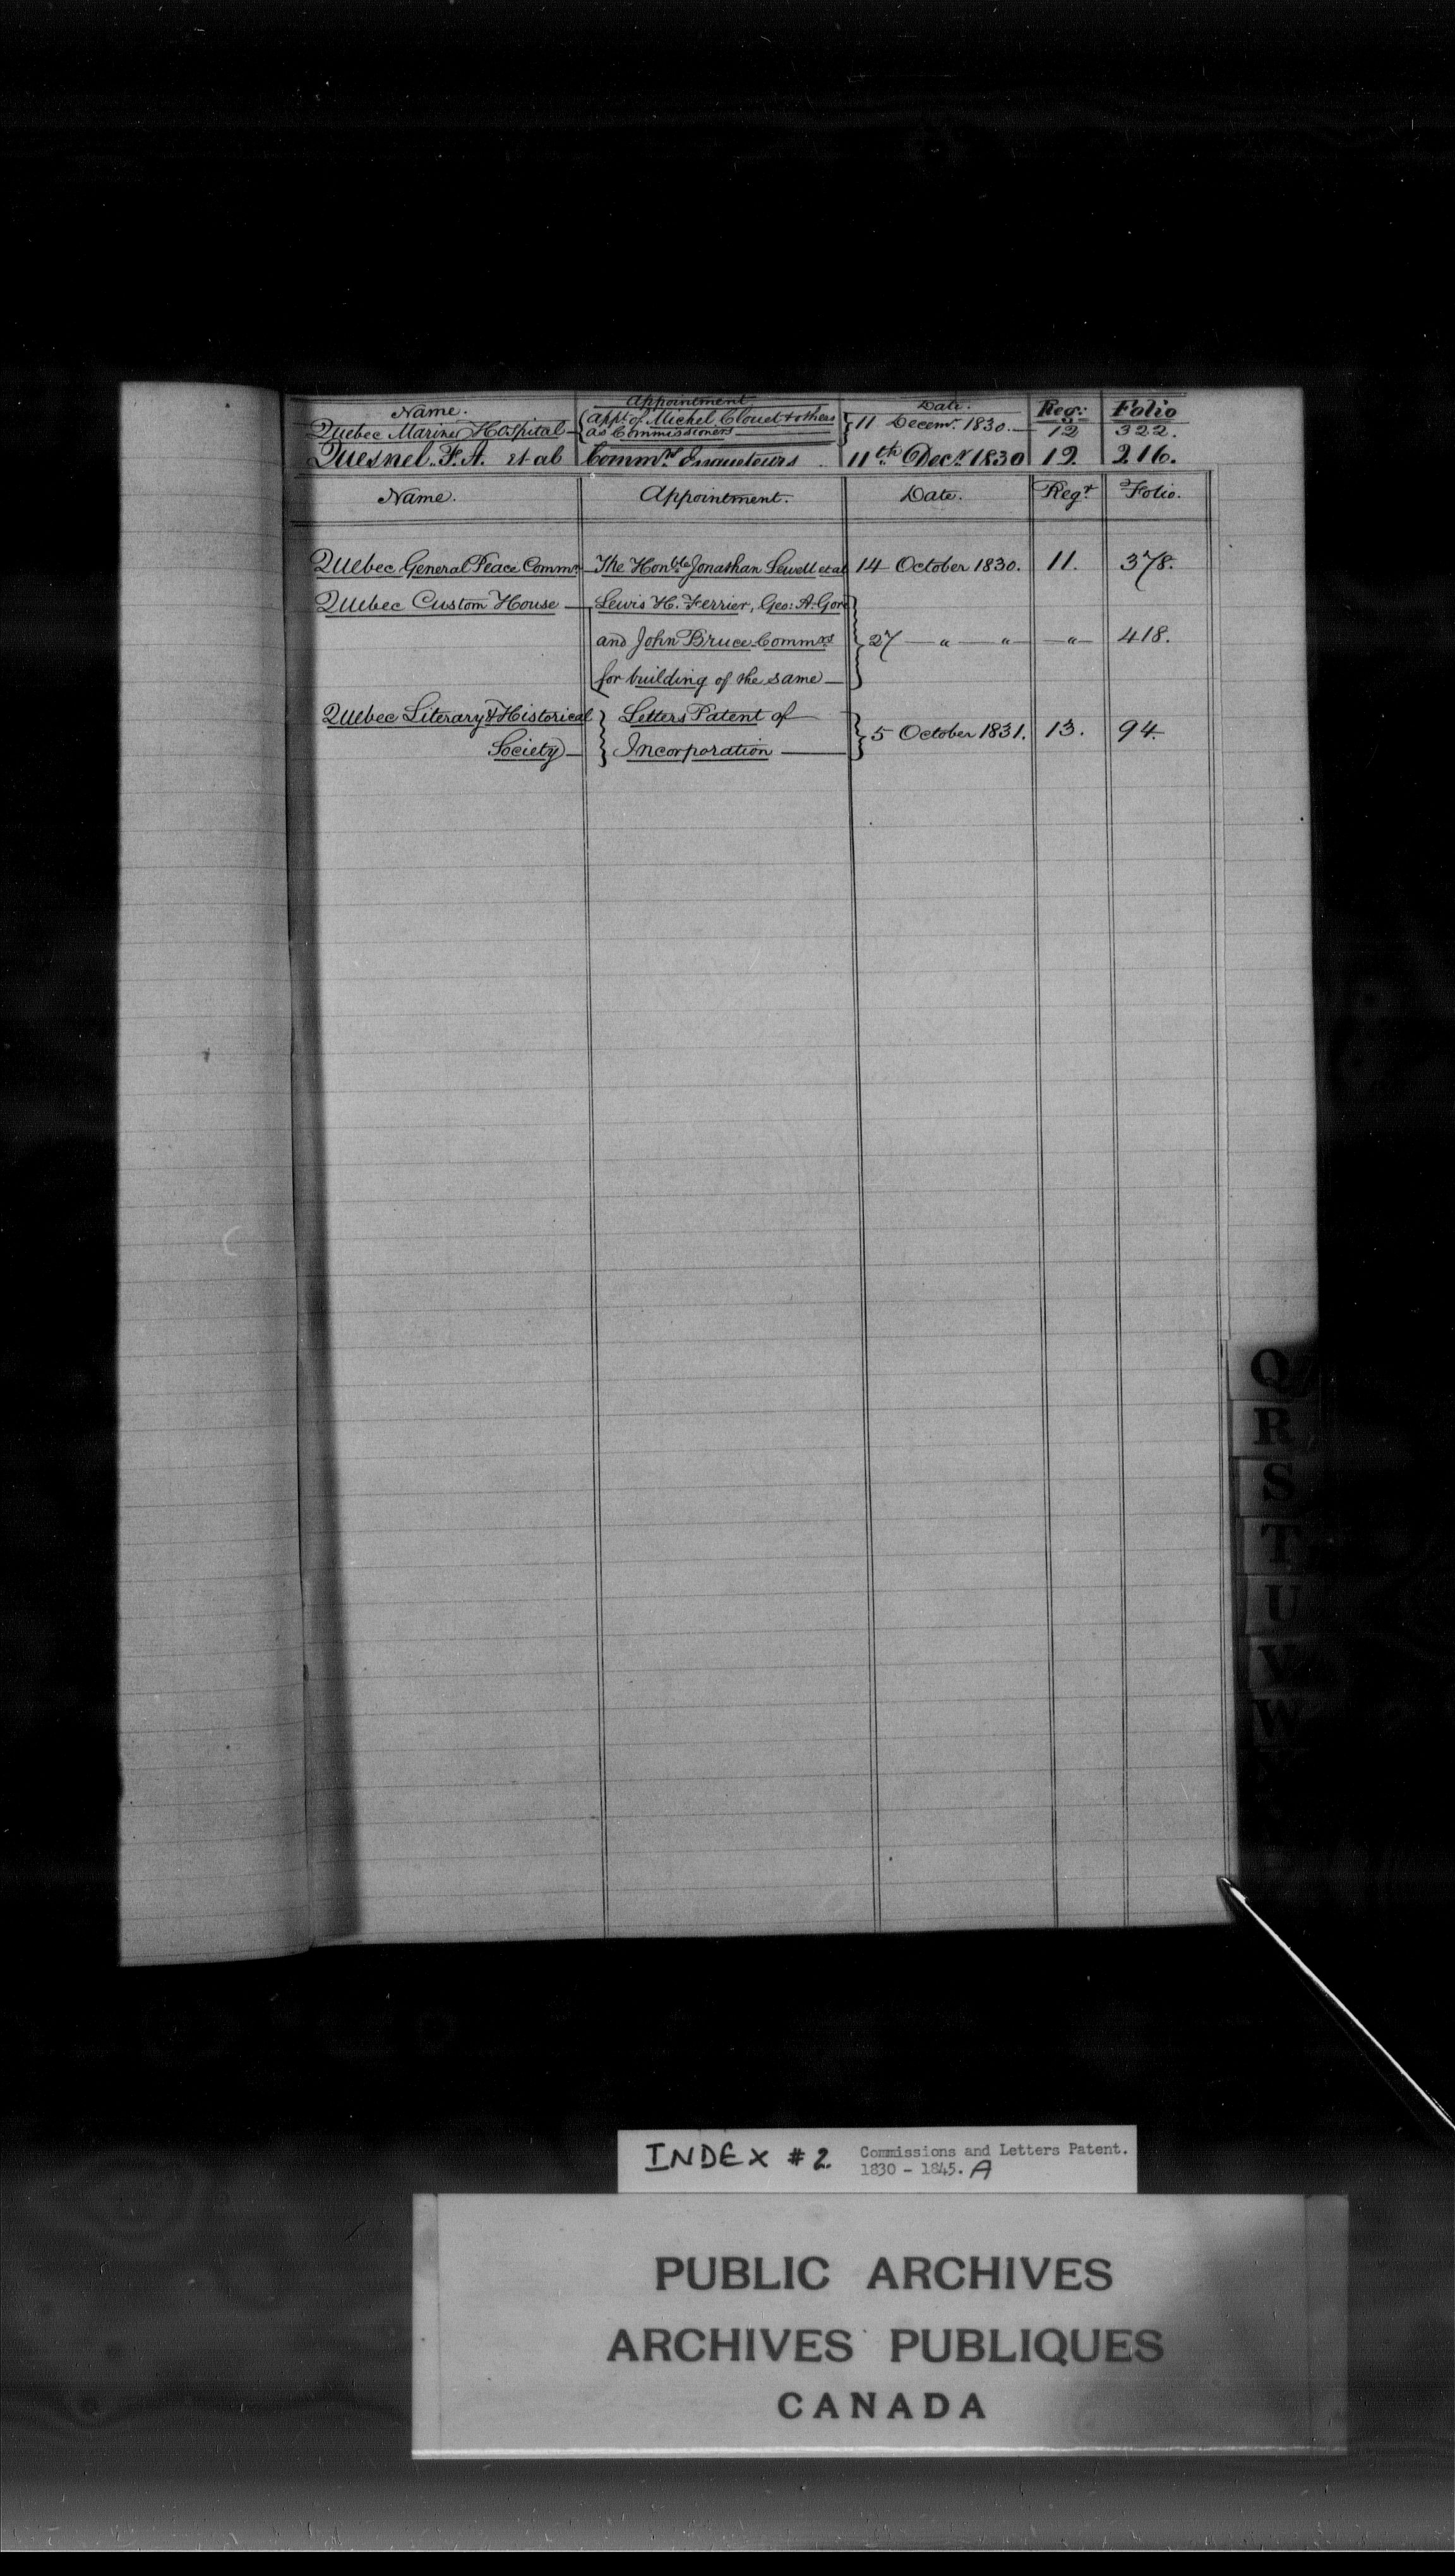 Name. Appointment Date. Regr: Folio
Quebec Marine Hospital { Appt. of Michel Clouet & others } 11 Decemr. 1830. 12 322.
as Commissioners
Quesnel. F. A. et al Commrs 11th Decr. 1830 12 216.
Name. Appointment. Date. Regr Folio.
Quebec General Peace Commn. The Honble Jonathan Sewell et al 14 October 1830. 11. 378.
Quebec Custom House Lewis H. Ferrier, Geo: A. Gore
and John Bruce Commrs } 27 " " " 418.
for building of the same
Quebec Literary & Historical } Letters Patent of } 5 October 1831. 13. 94.
Society } Incorporation
Q
R
S
T
U
V
W
INDEX # 2. Commissions and Letters Patent.
1830 - 1845. A
PUBLIC ARCHIVES
ARCHIVES PUBLIQUES
CANADA